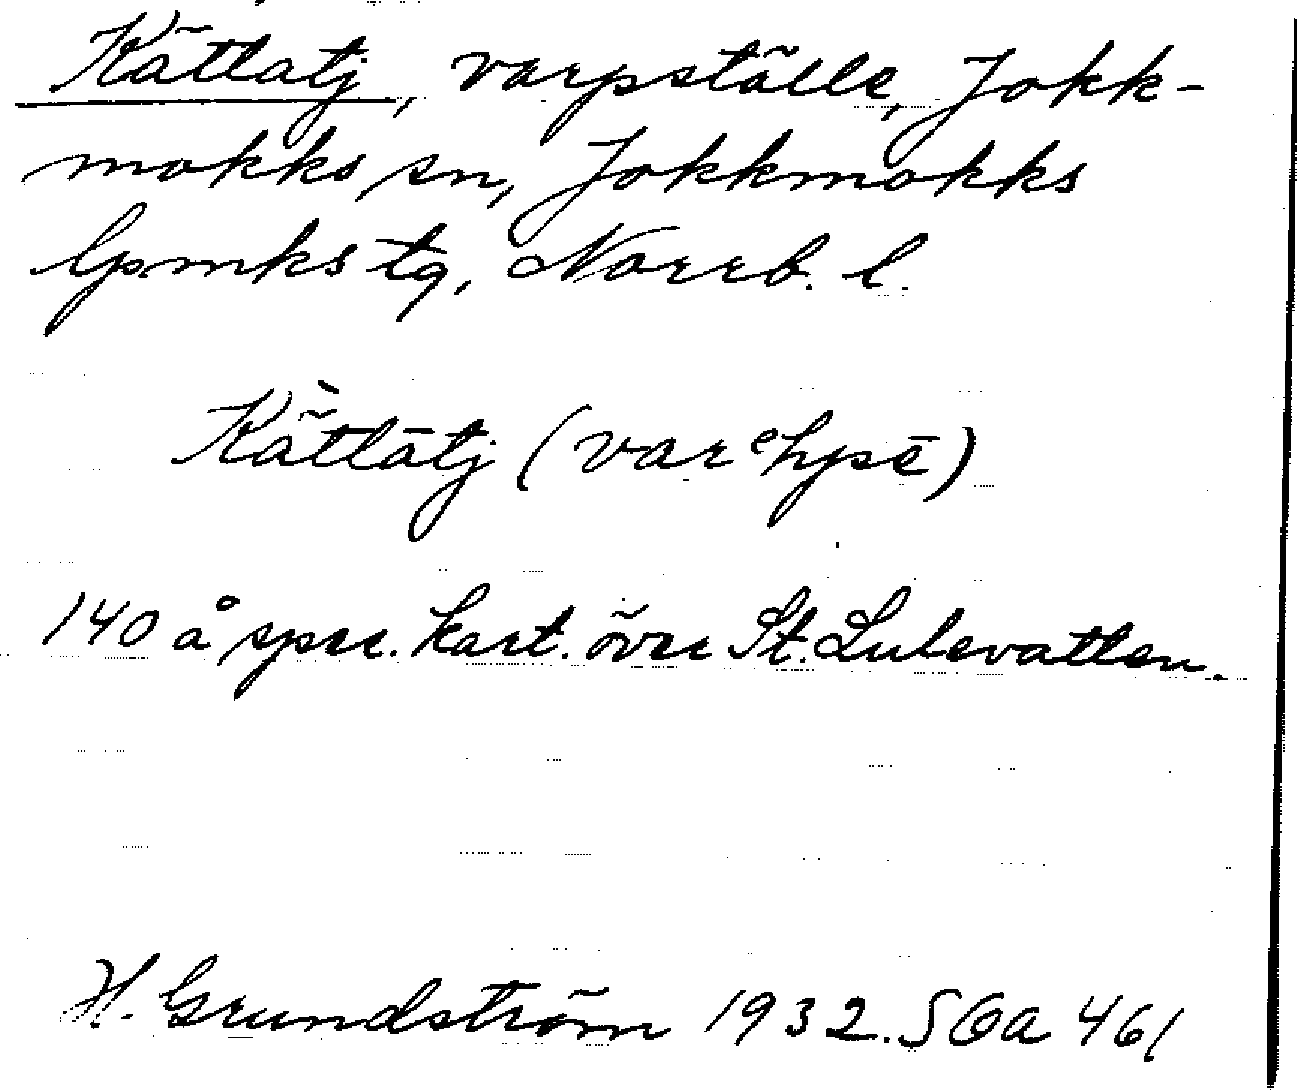 Kättatj, varpställe, Jokk-
mokks sn, Jokkmokks
lpmks tg, Norrb. l.
Kä̀ttātj (varᵉhpsē)
140 å spec. kart. över St. Lulevatten.
H. Grundström 1932. SOA 461